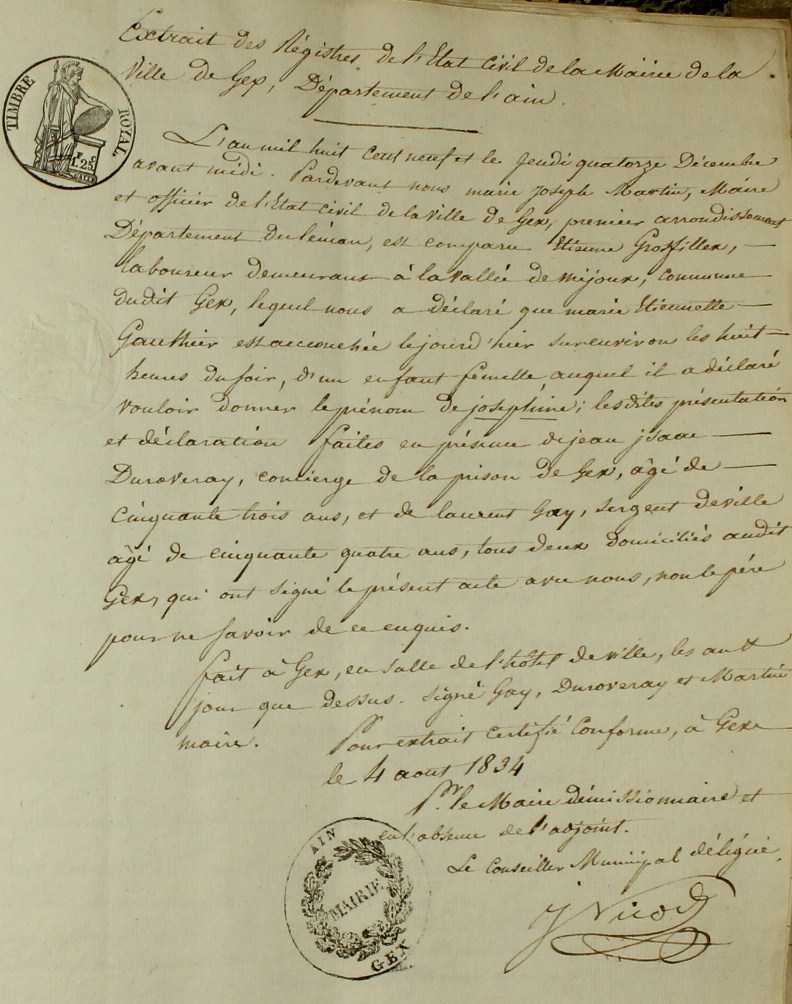 Extrait des Régistres de l'Etat Civil de la Mairie de la
Ville de Gex, Département de l'ain.
TIMBRE ROYAL
1.25
L'an mil huit cent neuf et le jeudi quatorze Décembre
avant midi. Pardevant nous marie joseph Martin, Maire
et officier de l'Etat Civil de la ville de Gex, premier arrondissement
Département du léman, est comparu Etienne Grosfillex,
laboureur demeurant à la vallée de mijoux, commune
dudit Gex, lequel nous a déclaré que marie Etiennette
Gauthier est accouchée le jour d'hier sur environ les huit
heures du soir, d'un enfant femelle, auquel il a déclaré
vouloir donner le prénom de josephine; lesdites présentation
et déclaration faites en présence de jean jsaac
Duroveray, concierge de la prison de Gex, âgé de
cinquante trois ans, et de laurent Gay, sergent de ville
âgé de cinquante quatre ans, tous deux domiciliés audit
Gex, qui ont signé le présent acte avec nous, non le pére
pour ne savoir de ce enquis.
fait à Gex, en salle de l'hôtel de ville, les an &
jour que dessus. signé Gay, Duroveray et Martin
maire.
Pour extrait certifié Conforme, à Gex
le 4 aout 1834
Pr. le Maire démissionnaire et
en l'absence de l'adjoint.
Le Conseiller Municipal délégué,
J Nicod
AIN
MAIRIE
GEX